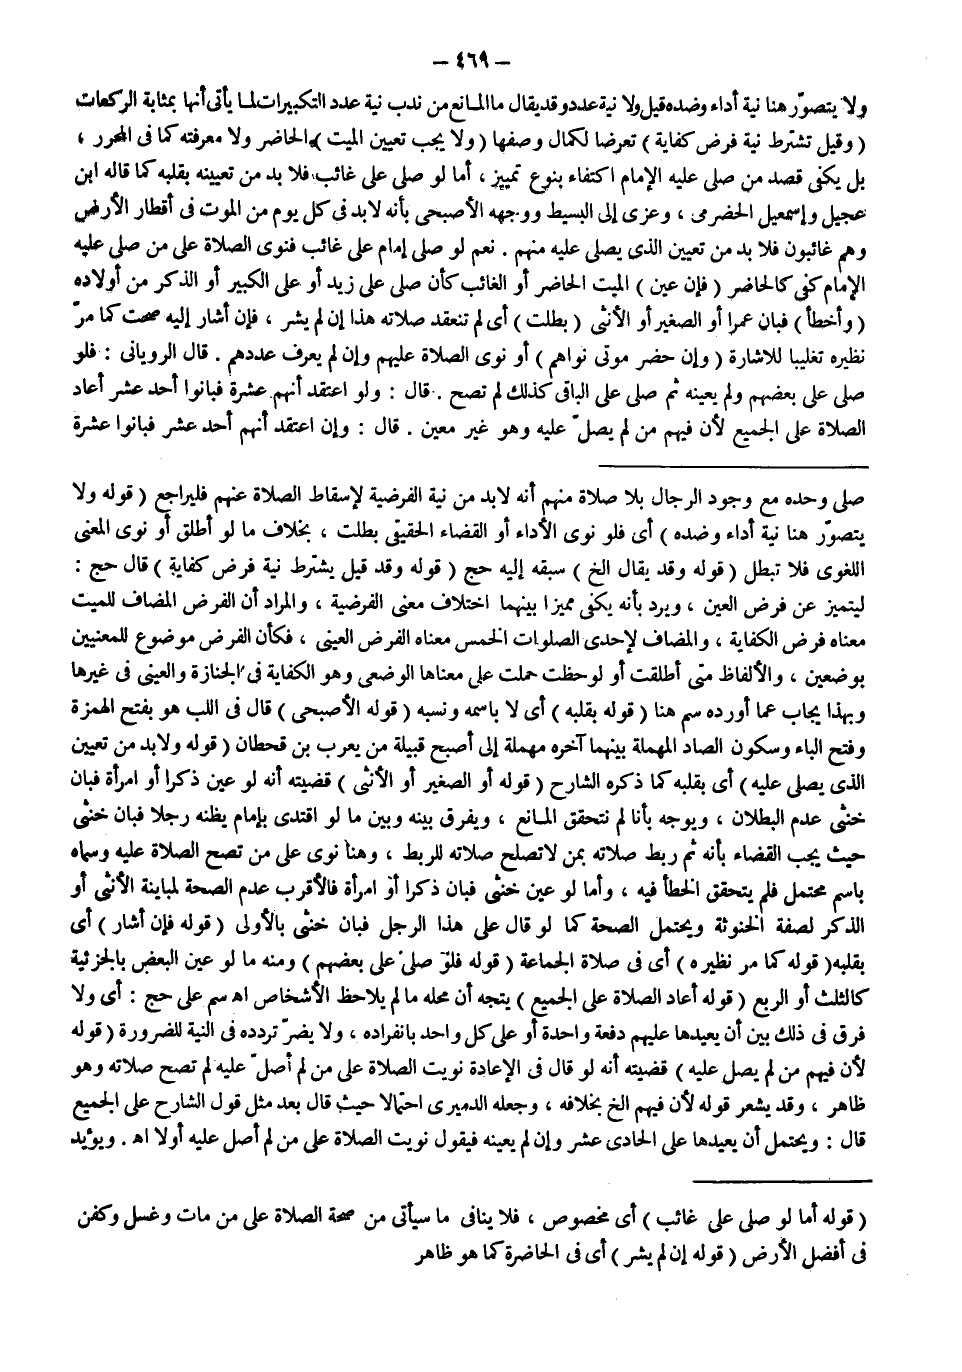 – ٤٦٩ –
ولا يتصوّر هنا نية أداء وضده قيل ولا نية عدد وقد يقال ما المانع من ندب نية عدد التكبيرات لما يأتى أنها بمثابة الركعات
( وقيل تشترط نية فرض كفاية ) تعرضا لكمال وصفها ( ولا يجب تعيين الميت ) الحاضر ولا معرفته كما فى المحرر ،
بل يكفى قصد من صلى عليه الإمام اكتفاء بنوع تمييز ، أما لو صلى على غائب فلا بد من تعيينه بقلبه كما قاله ابن
عجيل وإسمعيل الحضرمى ، وعزى إلى البسيط ووجهه الأصبحى بأنه لابد فى كل يوم من الموت فى أقطار الأرض
وهم غائبون فلا بد من تعيين الذى يصلى عليه منهم . نعم لو صلى إمام على غائب فنوى الصلاة على من صلى عليه
الإمام كفى كالحاضر ( فإن عين ) الميت الحاضر أو الغائب كأن صلى على زيد أو على الكبير أو الذكر من أولاده
( وأخطأ ) فبان عمرا أو الصغير أو الأنثى ( بطلت ) أى لم تنعقد صلاته هذا إن لم يشر ، فإن أشار إليه صحت كما مرّ
نظيره تغليبا للاشارة ( وإن حضر موتى نواهم ) أو نوى الصلاة عليهم وإن لم يعرف عددهم . قال الرويانى : فلو
صلى على بعضهم ولم يعينه ثم صلى على الباقى كذلك لم تصح . قال : ولو اعتقد أنهم عشرة فبانوا أحد عشر أعاد
الصلاة على الجميع لأن فيهم من لم يصلّ عليه وهو غير معين . قال : وإن اعتقد أنهم أحد عشر فبانوا عشرة
صلى وحده مع وجود الرجال بلا صلاة منهم أنه لابد من نية الفرضية لإسقاط الصلاة عنهم فليراجع ( قوله ولا
يتصوّر هنا نية أداء وضده ) أى فلو نوى الأداء أو القضاء الحقيقى بطلت ، بخلاف ما لو أطلق أو نوى المعنى
اللغوى فلا تبطل ( قوله وقد يقال الخ ) سبقه إليه حج ( قوله وقد قيل يشترط نية فرض كفاية ) قال حج :
ليتميز عن فرض العين ، ويرد بأنه يكفى مميزا بينهما اختلاف معنى الفرضية ، والمراد أن الفرض المضاف للميت
معناه فرض الكفاية ، والمضاف لإحدى الصلوات الخمس معناه الفرض العينى ، فكأن الفرض موضوع للمعنيين
بوضعين ، والألفاظ متى أطلقت أو لوحظت حملت على معناها الوضعى وهو الكفاية فى الجنازة والعينى فى غيرها
وبهذا يجاب عما أورده سم هنا ( قوله بقلبه ) أى لا باسمه ونسبه ( قوله الأصبحى ) قال فى اللب هو بفتح الهمزة
وفتح الباء وسكون الصاد المهملة بينهما آخره مهملة إلى أصبح قبيلة من يعرب بن قحطان ( قوله ولابد من تعيين
الذى يصلى عليه ) أى بقلبه كما ذكره الشارح ( قوله أو الصغير أو الأنثى ) قضيته أنه لو عين ذكرا أو امرأة فبان
خنثى عدم البطلان ، ويوجه بأنا لم نتحقق المانع ، ويفرق بينه وبين ما لو اقتدى بإمام يظنه رجلا فبان خنثى
حيث يجب القضاء بأنه ثم ربط صلاته بمن لاتصلح صلاته للربط ، وهنا نوى على من تصح الصلاة عليه وسماه
باسم محتمل فلم يتحقق الخطأ فيه ، وأما لو عين خنثى فبان ذكرا أو امرأة فالأقرب عدم الصحة لمباينة الأنثى أو
الذكر لصفة الخنوثة ويحتمل الصحة كما لو قال على هذا الرجل فبان خنثى بالأولى ( قوله فإن أشار ) أى
بقلبه( قوله كما مر نظيره ) أى فى صلاة الجماعة ( قوله فلو صلى على بعضهم ) ومنه ما لو عين البعض بالجزئية
كالثلث أو الربع ( قوله أعاد الصلاة على الجميع ) يتجه أن محله ما لم يلاحظ الأشخاص اهـ سم على حج : أى ولا
فرق فى ذلك بين أن يعيدها عليهم دفعة واحدة أو على كل واحد بانفراده ، ولا يضرّ تردده فى النية للضرورة ( قوله
لأن فيهم من لم يصل عليه ) قضيته أنه لو قال فى الإعادة نويت الصلاة على من لم أصلّ عليه لم تصح صلاته وهو
ظاهر ، وقد يشعر قوله لأن فيهم الخ بخلافه ، وجعله الدميرى احتمالا حيث قال بعد مثل قول الشارح على الجميع
قال : ويحتمل أن يعيدها على الحادى عشر وإن لم يعينه فيقول نويت الصلاة على من لم أصل عليه أولا اهـ . ويؤيد
( قوله أما لو صلى على غائب ) أى مخصوص ، فلا ينافى ما سيأتى من صحة الصلاة على من مات وغسل وكفن
فى أفضل الأرض ( قوله إن لم يشر ) أى فى الحاضرة كما هو ظاهر